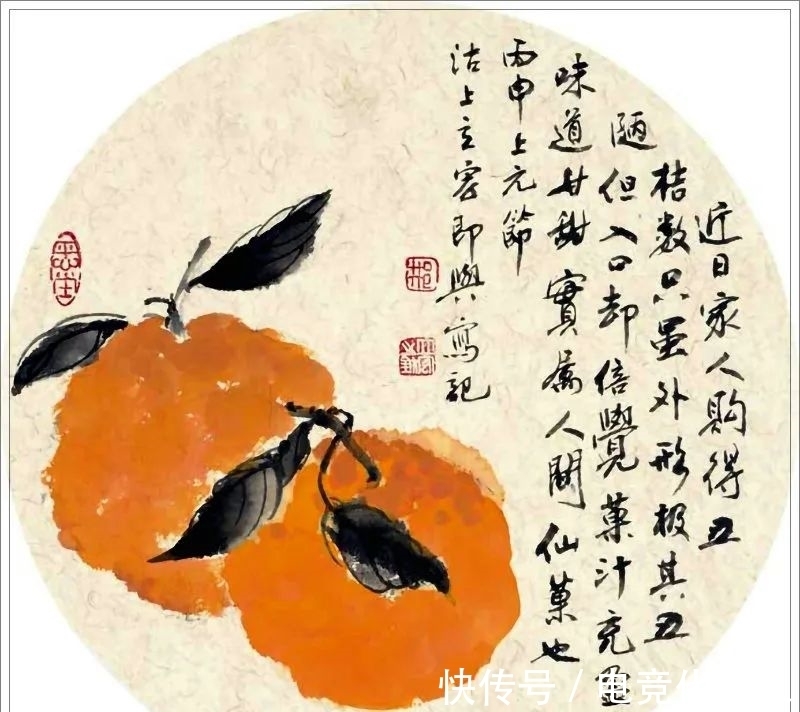 近日家人购得丑
桔数只虽外形极其丑
陋但入口却倍覺菓汁充盈
味道甘甜實属人間仙菓也
丙申上元節
沽上立即興寫記
快传号 / 电竞